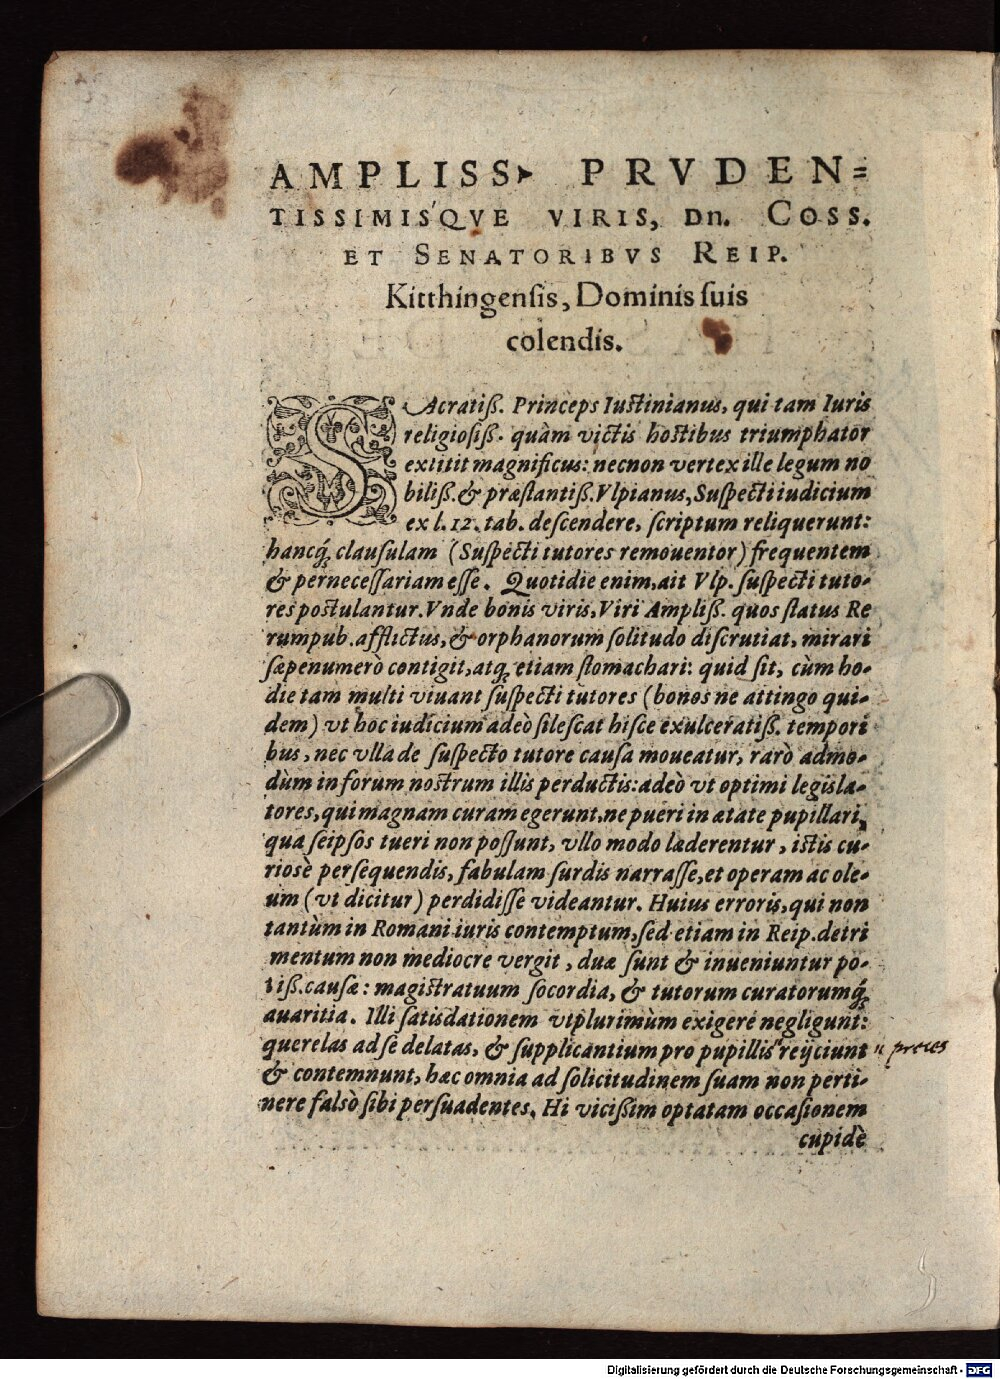 AMPLISS. PRVDEN=
TISSIMIS'QVE VIRIS, Dn. COSS.
ET SENATORIBVS REIP.
Kitthingenſis, Dominis ſuis
colendis.
SAcratiß. Princeps Iustinianus, qui tam Iuris
religioſiß. quàm victis hostibus triumphator
extitit magnificus: necnon vertex ille legum no
biliß. & præſtantiß. Vlpianus, Suſpecti iudicium
ex l. 12. tab. deſcendere, ſcriptum reliquerunt:
hancq́; clauſulam (Suſpecti tutores remouentor) frequentem
& perneceſſariam eſſe. Quotidie enim, ait Vlp. ſuſpecti tuto-
res postulantur. Vnde bonis viris, Viri Ampliß. quos ſtatus Re
rumpub. afflictus, & orphanorum ſolitudo diſcrutiat, mirari
ſæpenumerò contigit, atq; etiam ſtomachari: quid ſit, cùm ho-
die tam multi viuant ſuſpecti tutores (bonos ne attingo qui-
dem) vt hoc iudicium adeò ſileſcat hiſce exulceratiß. tempori
bus, nec vlla de ſuſpecto tutore cauſa moueatur, rarò admo-
dùm in forum nostrum illis perductis: adeò vt optimi legisla-
tores, qui magnam curam egerunt, ne pueri in ætate pupillari,
qua ſeipſos tueri non poſſunt, vllo modo læderentur, istis cu-
rioſè perſequendis, fabulam ſurdis narraſſe, et operam ac ole-
um (vt dicitur) perdidiſſe videantur. Huius erroris, qui non
tantùm in Romani iuris contemptum, ſed etiam in Reip. detri
mentum non mediocre vergit, duæ ſunt & inueniuntur po-
tiß. cauſæ: magistratuum ſocordia, & tutorum curatorumq́;
auaritia. Illi ſatisdationem vtplurimùm exigere negligunt:
querelas ad ſe delatas, & ſupplicantium pro pupillis " reijciunt " preces
& contemnunt, hæc omnia ad ſolicitudinem ſuam non perti-
nere falsò ſibi perſuadentes. Hi vicißim optatam occaſionem
cupidè
Digitalisierung gefördert durch die Deutsche Forschungsgemeinschaft - DFG